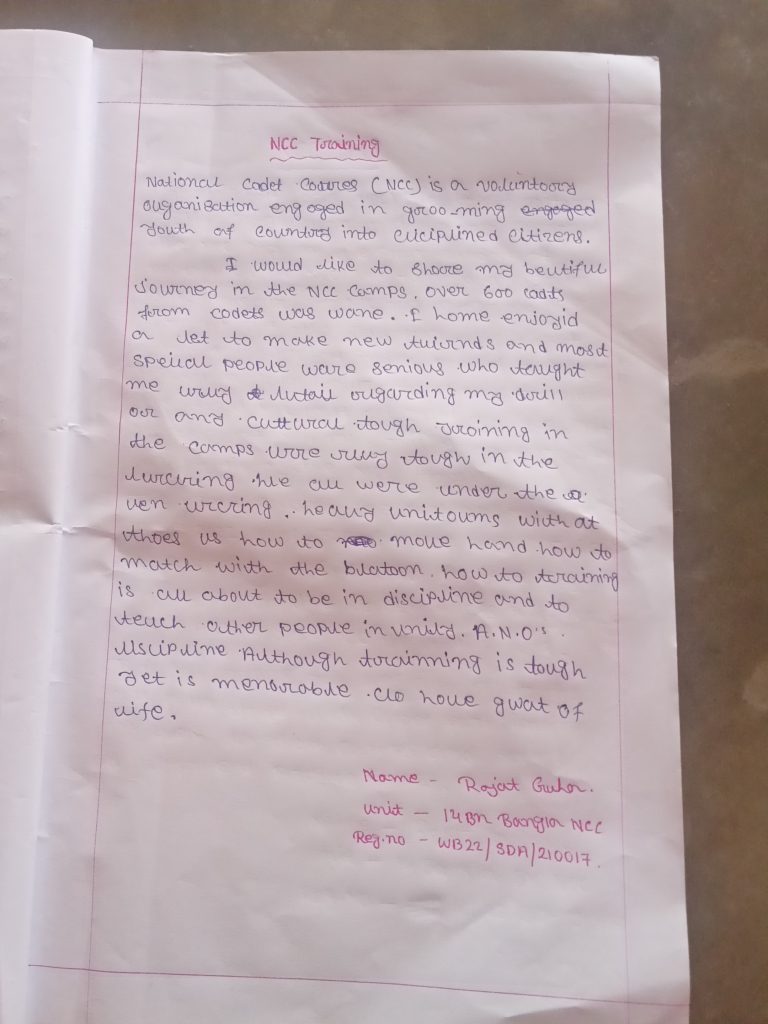 NCC Training
National Cadet Coures (NCC) is a voluntoory
ouganisation engaged in groo-ming engaged
youth of country into diciplined citizens.
I would like to share my beutiful
Journey in the NCC Camps. Over 600 cadits
from codets was wane. I home enjoyid
a let to make new and most
speical people ware senious who taught
me regarding my drill
our any cuttural tough training in
the camps wrre tough in the
we all were under the
heavy unitoums with at
thoes us how to move hand how to
match with the blatoon. how to training
is all about to be in discipline and to
teach other people in unity. A.N.O's.
Discipline Although trainning is tough
yet is memorable of
life.
Name - Rajat Guha.
Unit - 14 Bn Bangla NCC
Reg.no - WB22/SDA/210017.